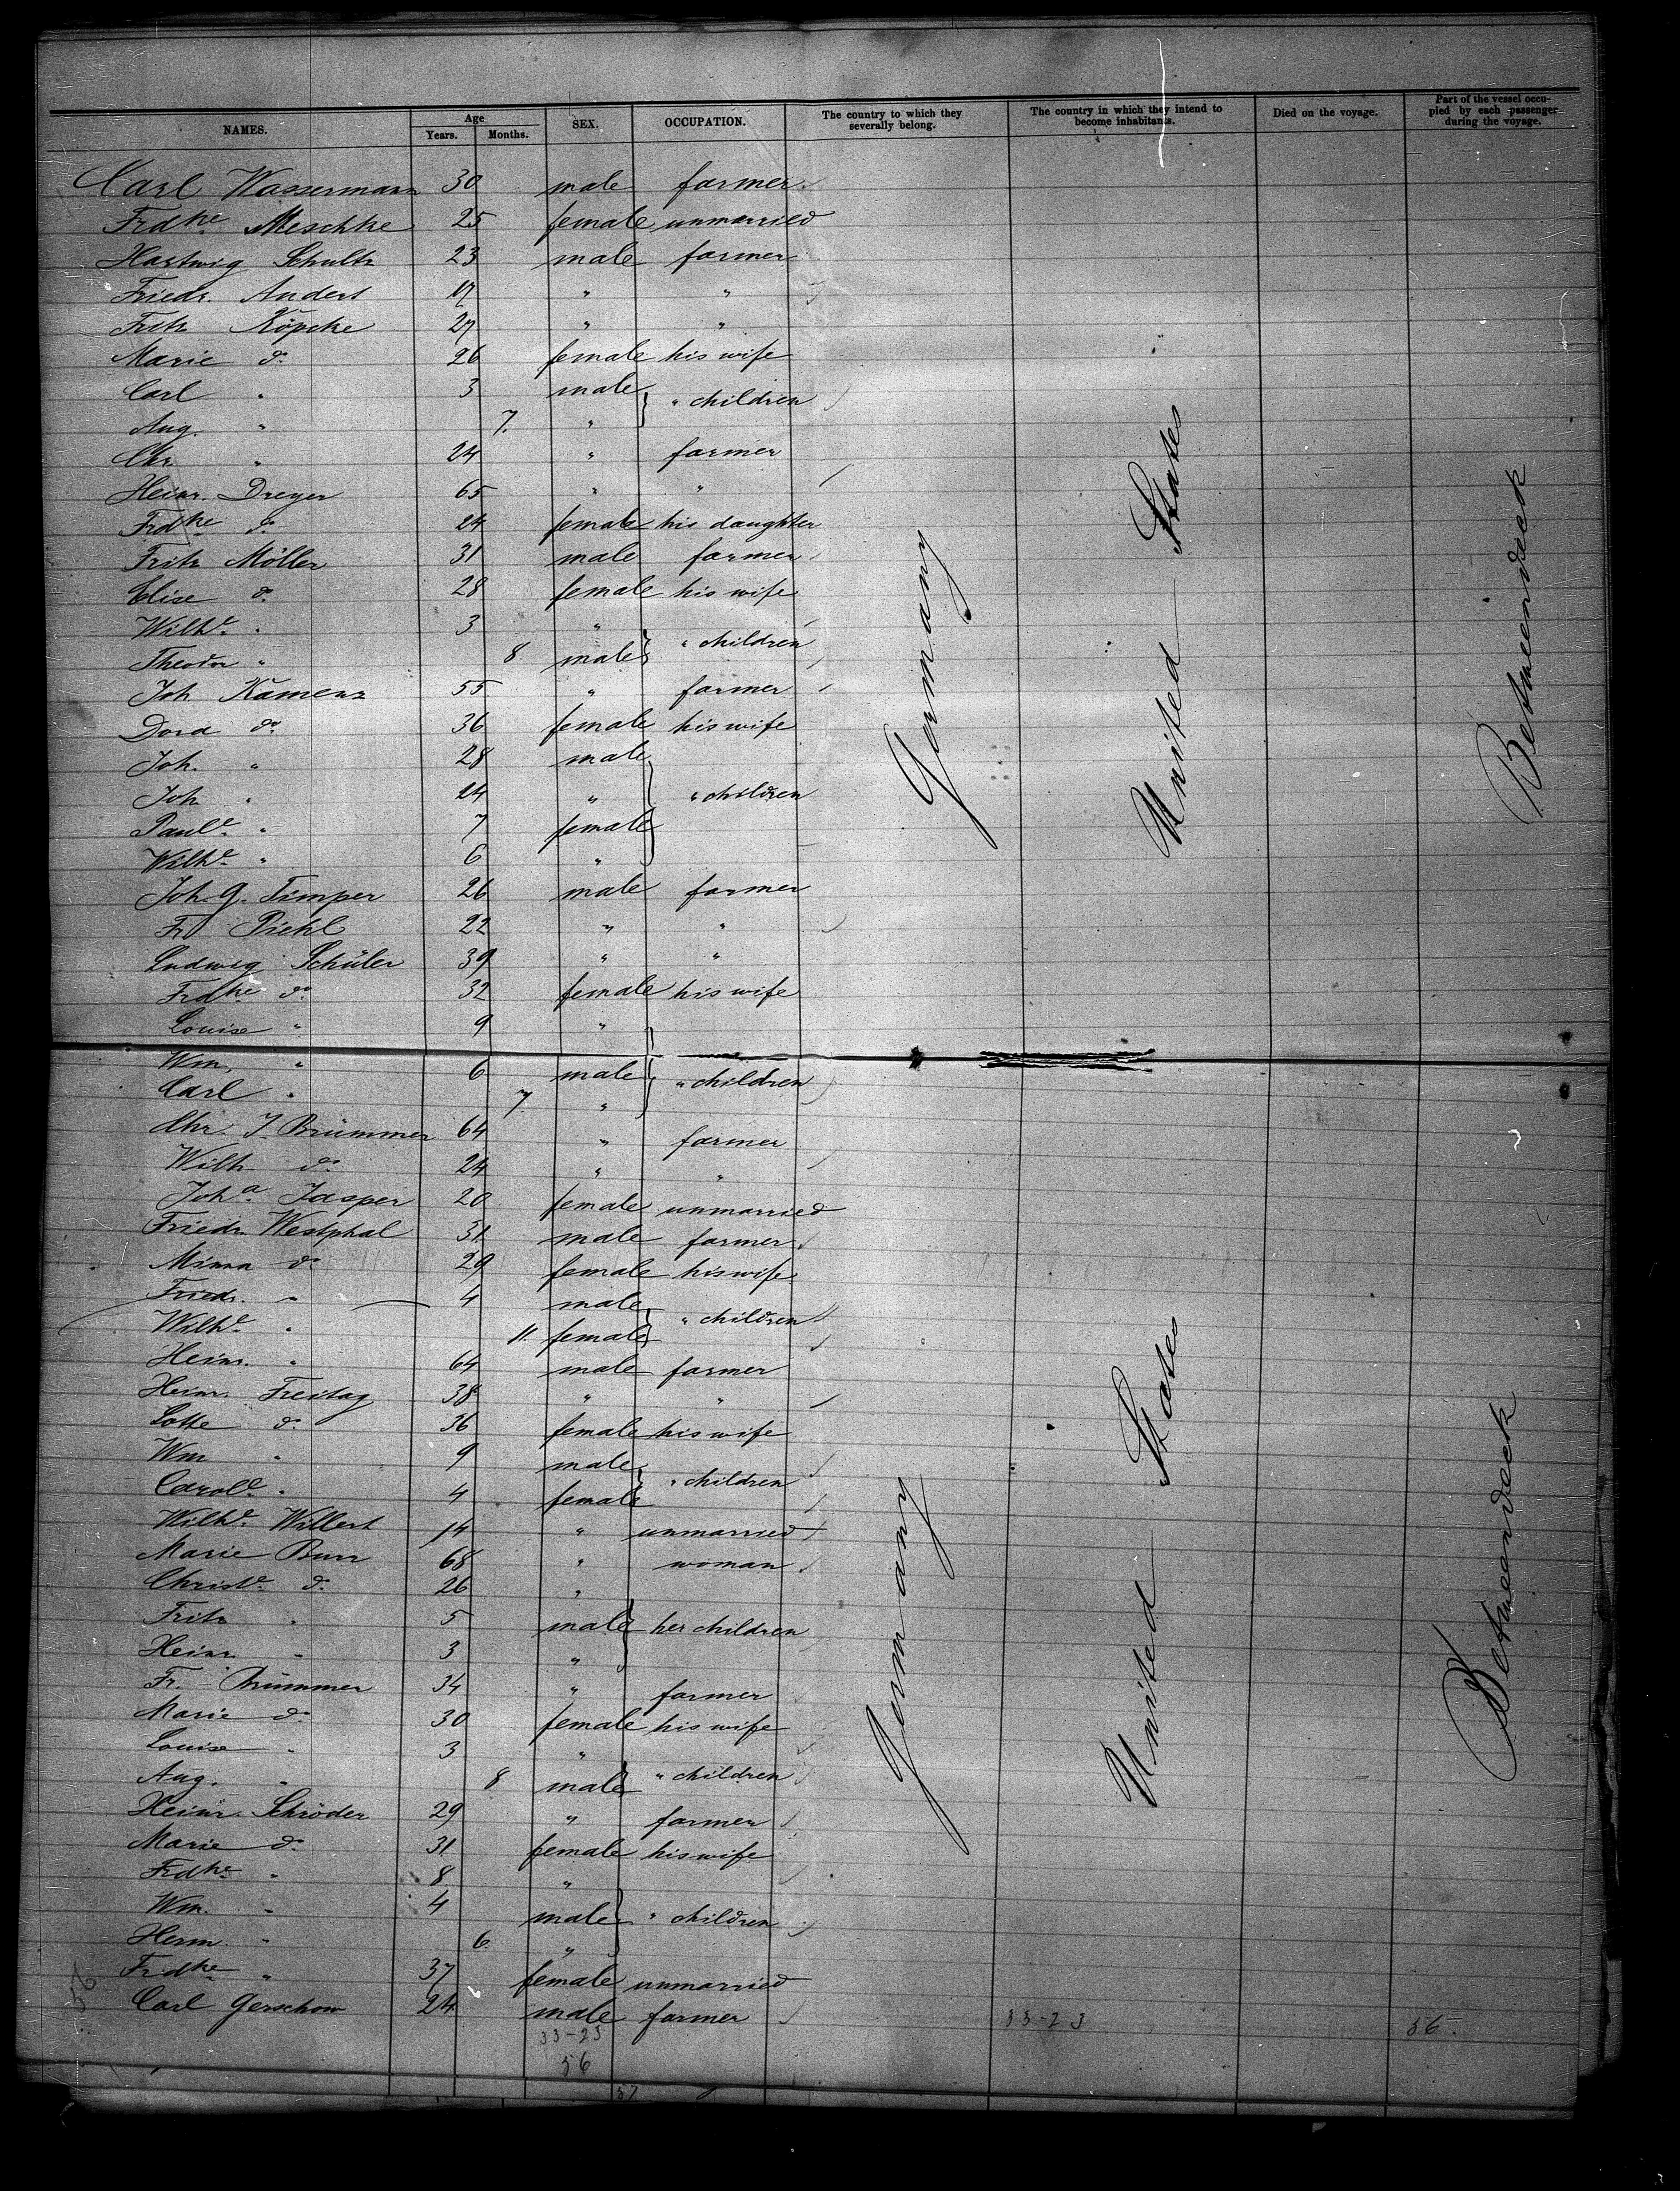 NAMES. Age Years. Months. SEX. OCCUPATION. The country to which they severally belong. The country in which they intend to become inhabitants. Died on the voyage. Part of the vessel occupied by each passenger during the voyage.
Carl Wassermann 30 male farmer
Frdke Meschke 25 female unmarried
Hartwig Schultz 23 male farmer
Friedr. Andert 17 " "
Fritz Köpcke 27 " "
Marie do 26 female his wife
Carl " 3 male } " children
Aug. " 7. "
Chr. " 24 " farmer
Heinr. Dreyer 65 " "
Frdke do 24 female his daughter
Fritz Möller 31 male farmer
Elise do 28 female his wife
Wilhe " 3 " } " children
Theodor " 8 male
Joh. Kamenz 55 " farmer
Dora do 36 female his wife
Joh. " 28 male
Joh " 24 " } " children
Paule " 7 female
Wilhe " 6 "
Joh. G. Timper 26 male farmer
Fr Piehl 22 " "
Ludwig Schüler 39 " "
Frdke do 32 female his wife
Louise " 9 "
Wm. " 6 male } " children
Carl " 7. "
Chr. J. Brümmer 64 " farmer
Wilh do 24 " "
Joha Jasper 20 female unmarried
Friedr. Westphal 31 male farmer
Minna do 29 female his wife
Friedr. " 4 male } " children
Wilhe " 11. female
Heinr. " 64 male farmer
Heinr. Freitag 38 " "
Lotte do 36 female his wife
Wm " 9 male } " children
Carole " 4 female
Wilhe Willert 14 " unmarried
Marie Burr 68 " woman
Christe do 26 "
Fritz " 5 male } her children
Heinr " 3 "
Fr. Brümmer 34 " farmer
Marie do 30 female his wife
Louise " 3 "
Aug. " 8 male } " children
Heinr. Schröder 29 " farmer
Marie do 31 female his wife
Frdke " 8 "
Wm. " 4 male } " children
Herm. " 6 "
Frdke " 37 female unmarried
Carl Gerschow 24 male farmer
Germany
United States
Betweendeck
Germany
United States
Betweendeck
33-23
56
33-23
56.
57